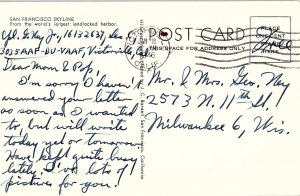 SAN FRANCISCO SKYLINE
From the world's largest landlocked harbor.
Geo. Ney Jr., 16132637, Sec. C
3035 AAF-BU-VAAF, Victorville,
Dear Mom & Pop,
I'm sorry I haven't
answered your letter
so soon as I wanted
to, but will write
today yet or tomorrow.
Have kept quite busy
lately. I've lots of
pictures for you!
POST CARD
THIS SPACE FOR ADDRESS ONLY
PLACE
ONE CENT
STAMP
HERE
Free
CALIF
San Francisco, California
Mr. & Mrs. Geo. Ney
2573 N. 11th St.
Milwaukee 6, Wis.